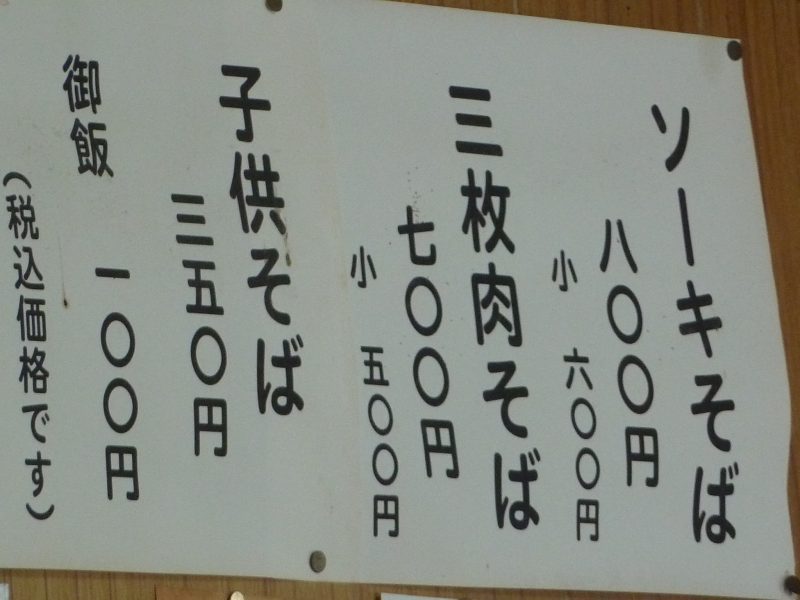 ソーキそば
八〇〇円
小 六〇〇円
三枚肉そば
七〇〇円
小 五〇〇円
子供そば
三五〇円
御飯
一〇〇円
（税込価格です）